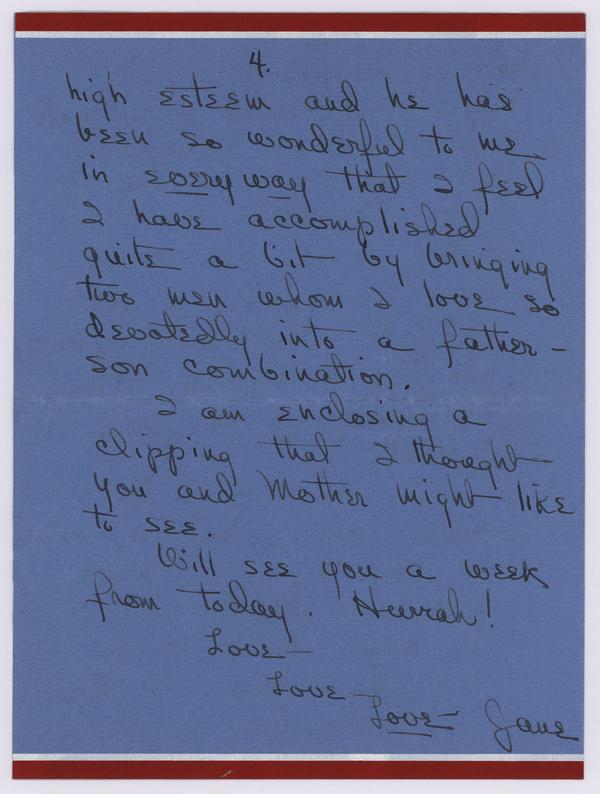 4.
high esteem and he has
been so wonderful to me
in every way that I feel
I have accomplished
quite a bit by bringing
two men whom I love so
devotedly into a father-
son combination.
I am enclosing a
clipping that I thought
you and Mother might like
to see.
Will see you a week
from today. Hurrah!
Love—
Love—
Love— Jane